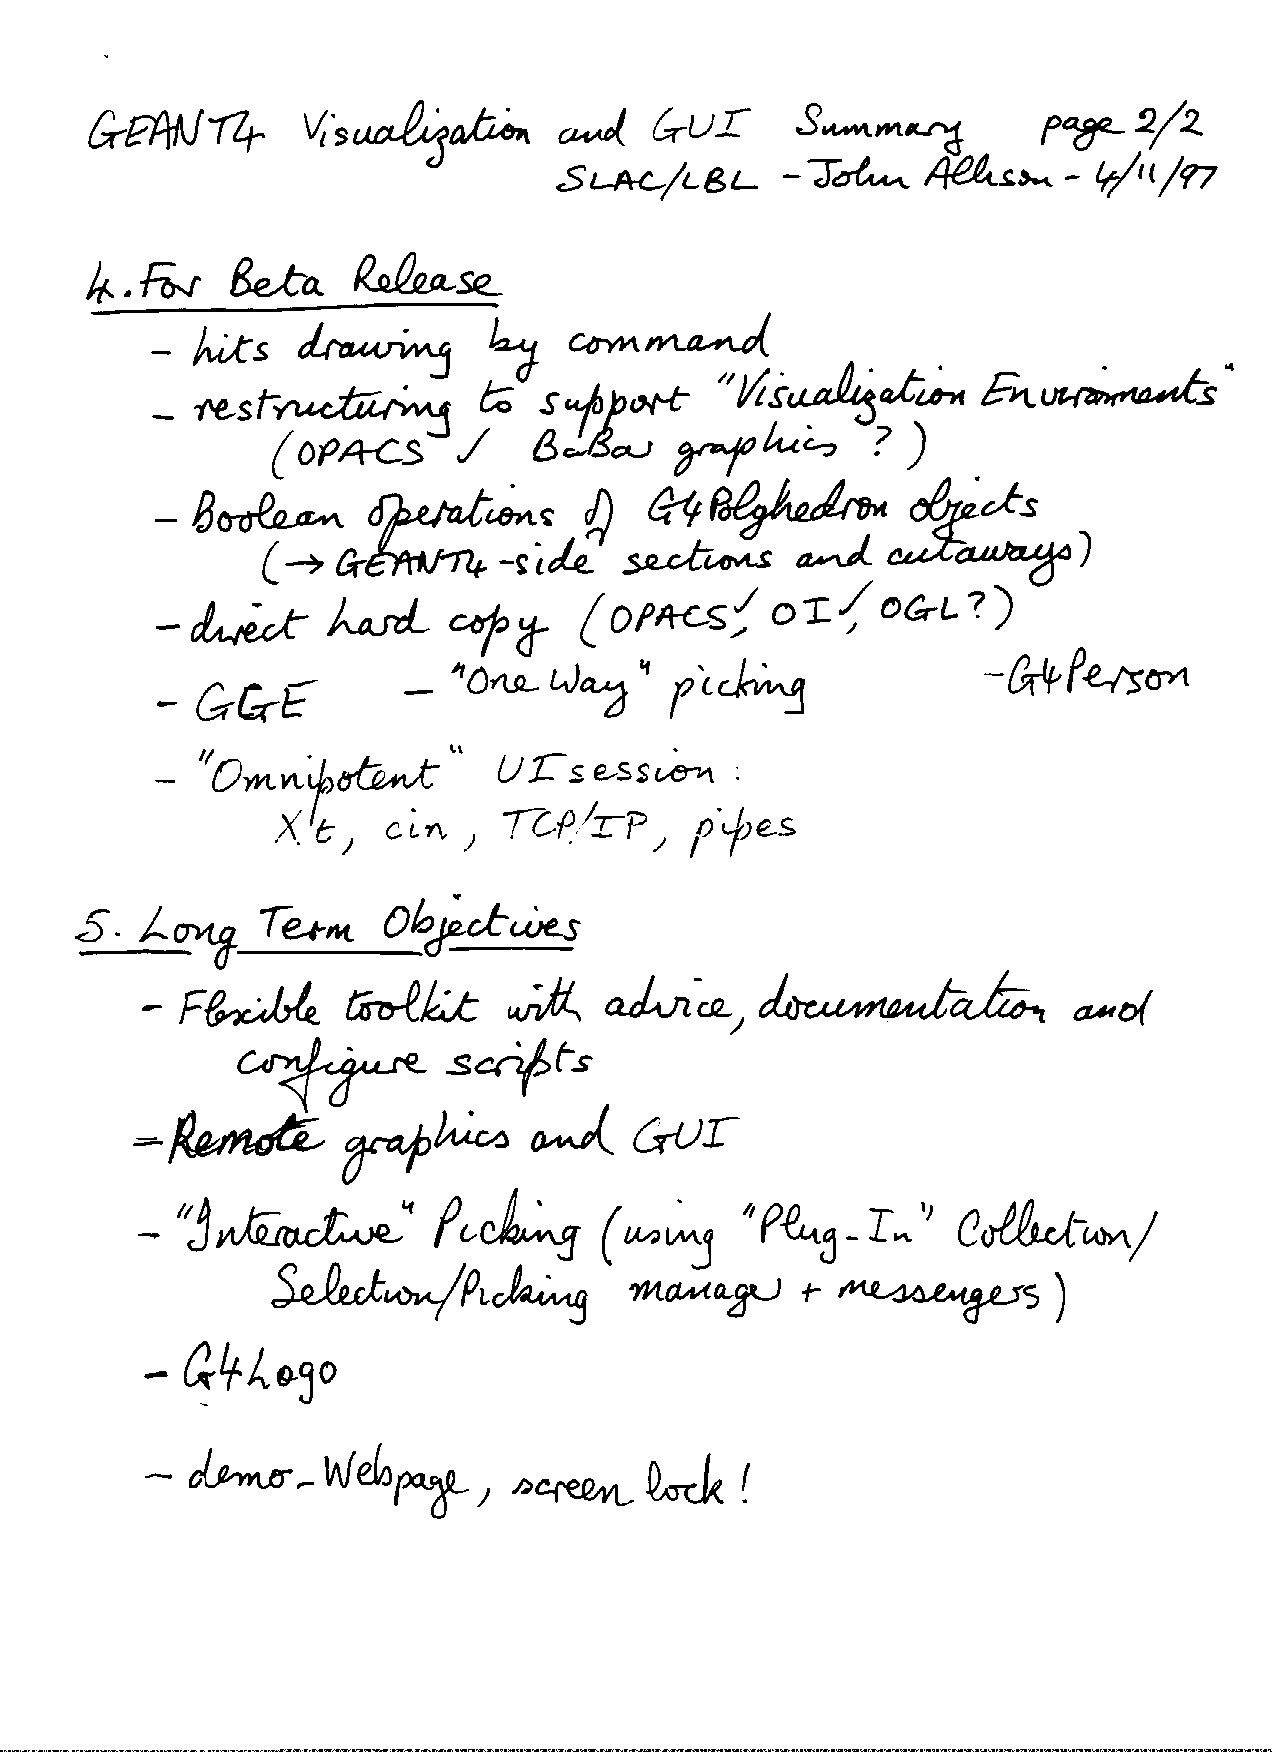 GEANT4 Visualization and GUI Summary page 2/2
SLAC/LBL - John Allison - 4/11/97
4. For Beta Release
- hits drawing by command
- restructuring to support "Visualization Environments"
(OPACS ✓ BaBar graphics ?)
- Boolean operations of G4Polyhedron objects
(→ GEANT4-side sections and cutaways)
- direct hard copy (OPACS✓, OI✓, OGL?)
- GGE - "One Way" picking - G4Person
- "Omnipotent" UI session :
Xt, cin, TCP/IP, pipes
5. Long Term Objectives
- Flexible toolkit with advice, documentation and
configure scripts
- Remote graphics and GUI
- "Interactive" Picking (using "Plug-In" Collection/
Selection/Picking manager + messengers)
- G4Logo
- demo - Webpage, screen lock!